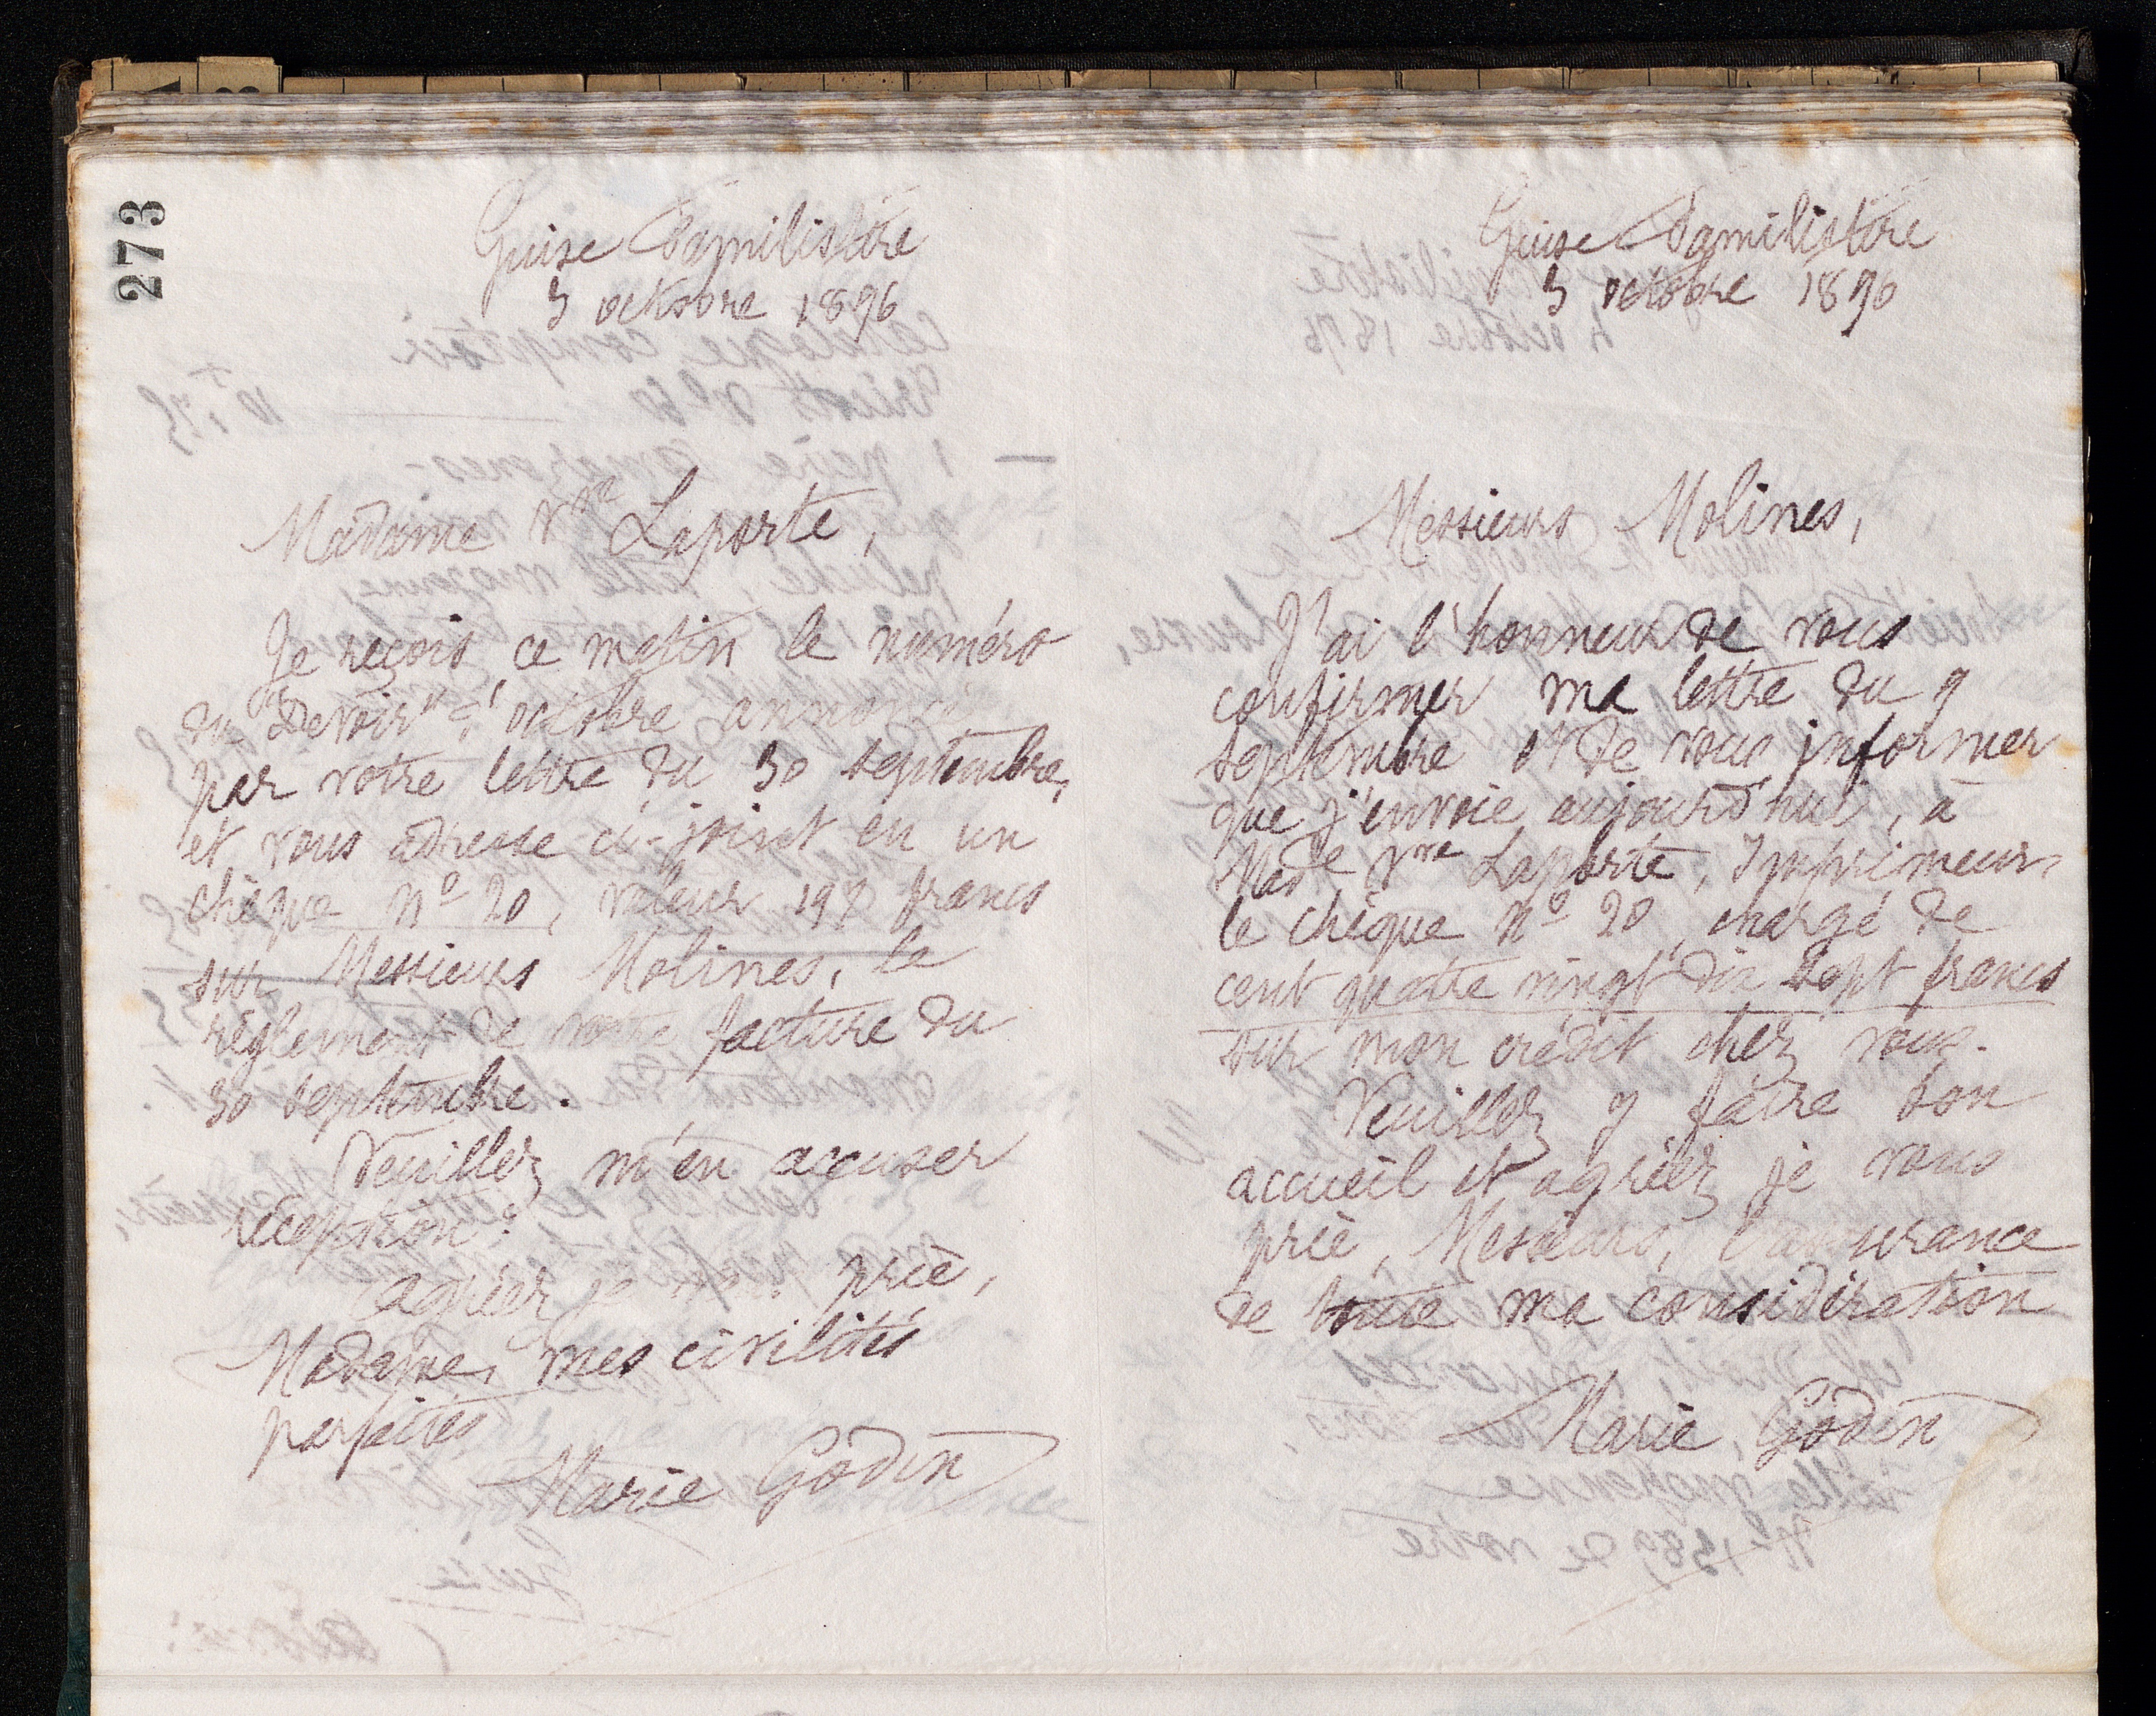 273
Guise Familistère
3 octobre 1896
Madame Vve Laporte,
Je reçois ce matin le numéro
du "Devoir" d'octobre annoncé
par votre lettre du 30 septembre,
et vous adresse ci-joint en un
chèque No 20, valeur 197 francs
sur Messieurs Molines, le
règlement de votre facture du
30 septembre.
Veuillez m'en accuser
réception?
Agréez je vous prie,
Madame, mes civilités
parfaites
Marie Godin
Guise Familistère
3 octobre 1896
Messieurs Molines,
J'ai l'honneur de vous
confirmer ma lettre du 9
septembre et de vous informer
que j'envoie aujourd'hui, à
Made Vve Laporte, Imprimeur,
le chèque No 20, chargé de
cent quatre vingt dix sept francs
sur mon crédit chez vous.
Veuillez y faire bon
accueil et agréez je vous
prie, Messieurs, l'assurance
de toute ma considération
Marie Godin